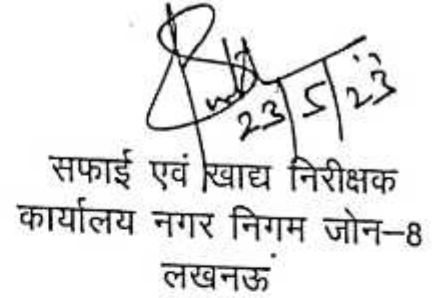 23/5/23
सफाई एवं खाद्य निरीक्षक
कार्यालय नगर निगम जोन–8
लखनऊ